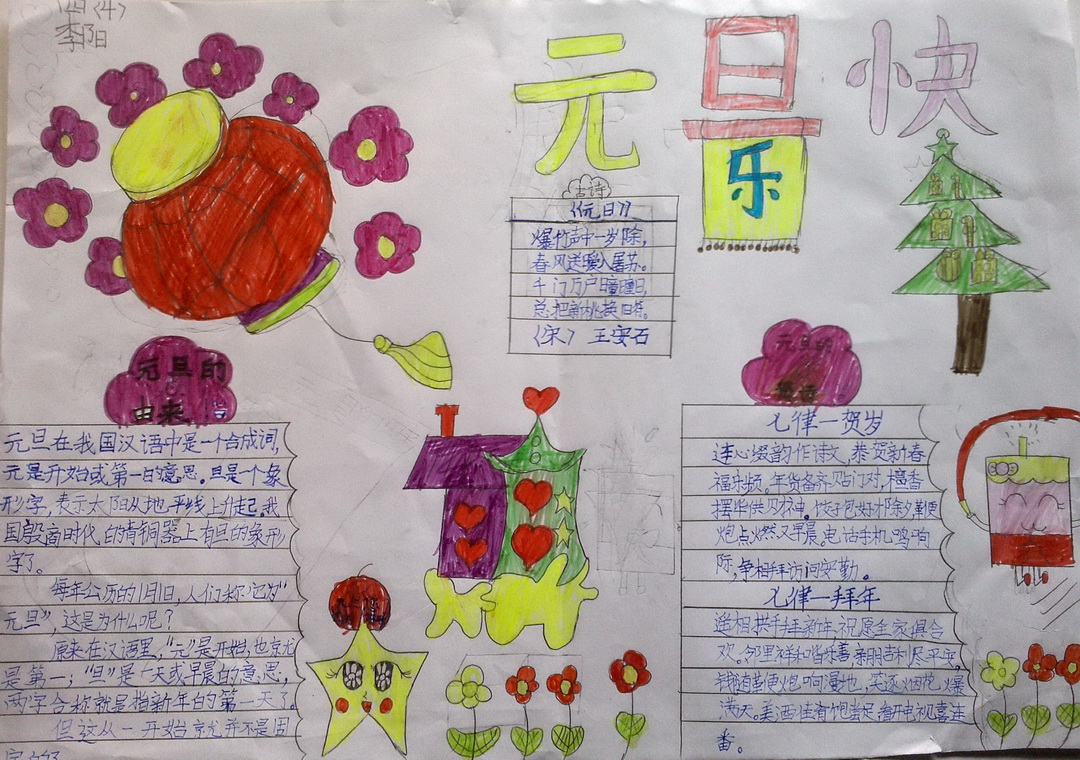 四(4)
李阳
元旦快
乐
古诗
《元日》
爆竹声中一岁除，
春风送暖入屠苏。
千门万户曈曈日，
总把新桃换旧符。
〈宋〉 王安石
元旦的
由来
元旦在我国汉语中是一个合成词，
元是开始或第一的意思。旦是一个象
形字，表示太阳从地平线上升起。我
国殷商时代的青铜器上有旦的象形
字了。
每年公历的1月1日，人们称它为“
元旦”，这是为什么呢？
原来在汉语里，“元”是开始，也就
是第一；“旦”是一天或早晨的意思，
两字合称就是指新年的第一天了。
但这从一开始就并不是固
元旦的
七律一贺岁
连心缀韵作诗文，恭贺新春
福乐频。年货备齐贴门对，檀香
摆华供财神。饺子包好邪除夕，鞭
炮点燃又早晨。电话手机鸣响
际，争相拜访问安勤。
七律一拜年
遥相拱手拜新年，祝愿全家俱合
欢。邻里祥和谐乐善，亲朋吉利尽平安，
满天。美酒佳肴饱尝足，看开电视喜连
番。